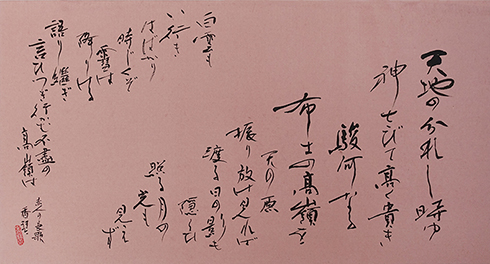 天地の分れし時ゆ
神さびて高く貴き
駿河なる
布士の高嶺を
天の原
振り放け見れば
渡る日の影も
隠らひ
照る月の
光も
見えず
白雲も
い行き
はばかり
時じくぞ
雪は
降りける
語り継ぎ
言ひつぎ行かむ不盡の
高嶺は